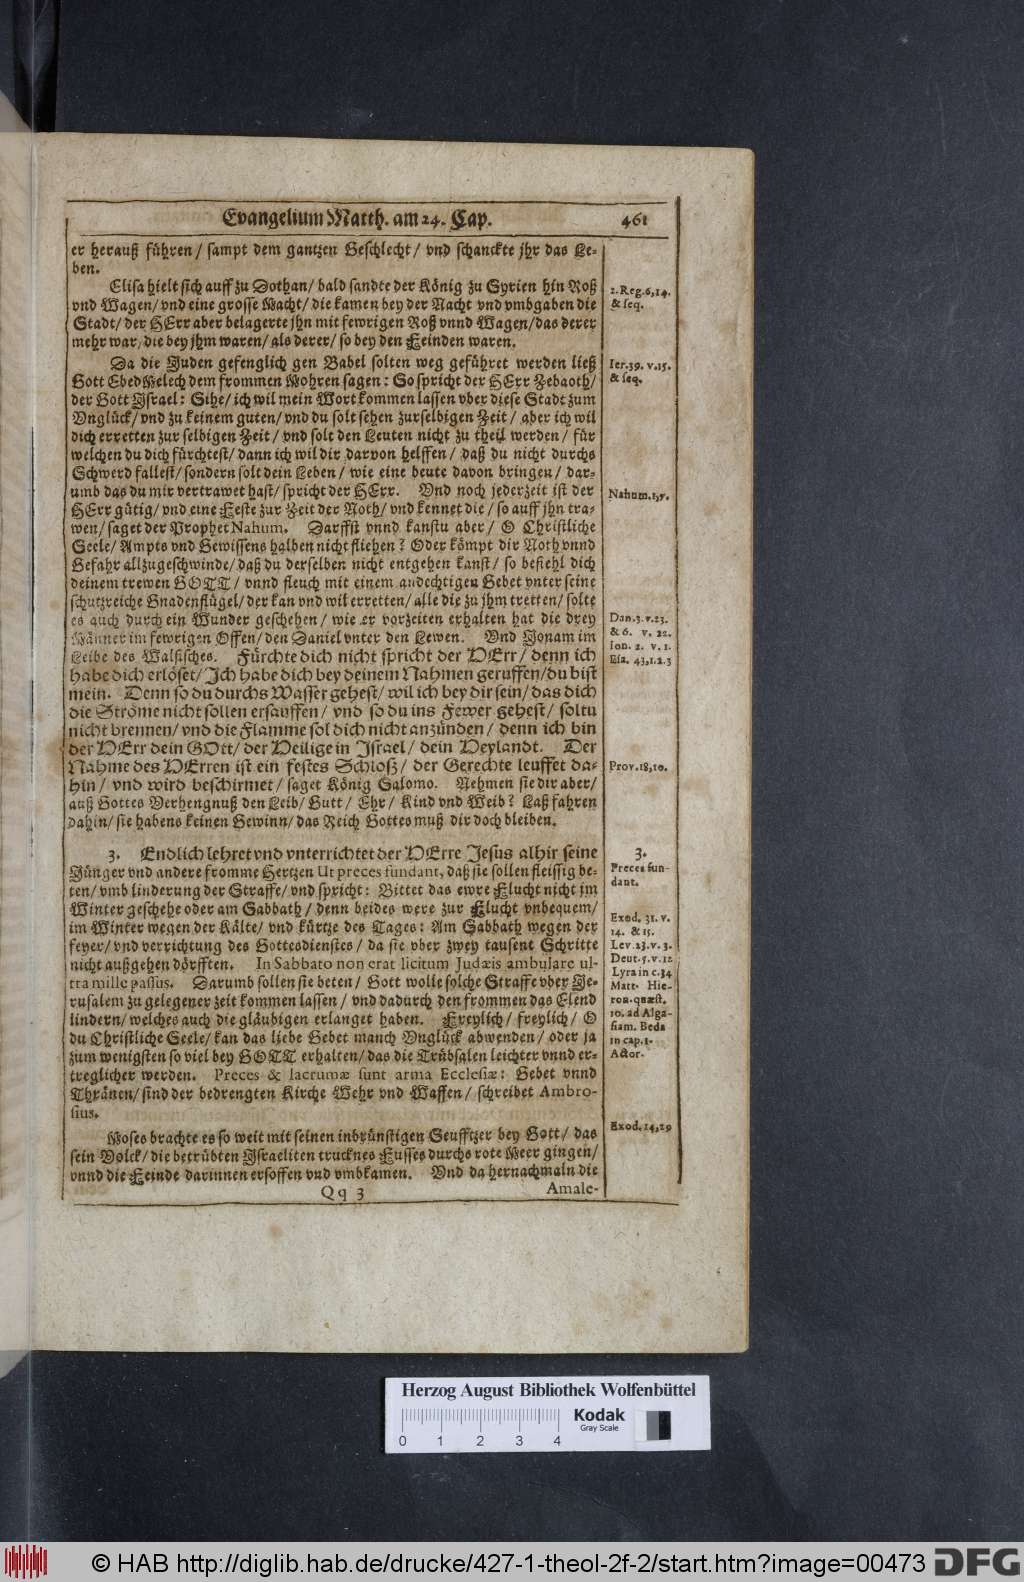 Evangelium Matth. am 24. Cap. 461
er herauß führen/ sampt dem gantzen Geschlecht/ vnd schanckte jhr das Le-
ben.
Elisa hielt sich auff zu Dothan/ bald sandte der König zu Syrien hin Roß
vnd Wagen/ vnd eine grosse Macht/ die kamen bey der Nacht vnd vmbgaben die
Stadt/ der HErr aber belagerte jhn mit fewrigen Roß vnnd Wagen/ das derer
mehr war/ die bey jhm waren/ als derer/ so bey den Feinden waren.
Da die Juden gefenglich gen Babel solten weg geführet werden ließ
Gott EbedMelech dem frommen Mohren sagen: So spricht der HErr Zebaoth/
der Gott Jsrael: Sihe/ ich wil mein Wort kommen lassen vber diese Stadt zum
Vnglück/ vnd zu keinem guten/ vnd du solt sehen zur selbigen Zeit/ aber ich wil
dich erretten zur selbigen Zeit/ vnd solt den Leuten nicht zu theil werden/ für
welchen du dich fürchtest/ dann ich wil dir darvon helffen/ daß du nicht durchs
Schwerd fallest/ sondern solt dein Leben/ wie eine beute davon bringen/ dar-
umb das du mir vertrawet hast/ spricht der HErr. Vnd noch jederzeit ist der
HErr gütig/ vnd eine Feste zur Zeit der Noth/ vnd kennet die/ so auff jhn tra-
wen/ saget der Prophet Nahum. Darffst vnnd kanstu aber/ O Christliche
Seele/ Ampts vnd Gewissens halben nicht fliehen? Oder kömpt dir Noth vnnd
Gefahr allzugeschwinde/ daß du derselben nicht entgehen kanst/ so befiehl dich
deinem trewen GOTT/ vnnd fleuch mit einem andechtigen Gebet vnter seine
schutzreiche Gnadenflügel/ der kan vnd wil erretten/ alle die zu jhm tretten/ solte
es auch durch ein Wunder geschehen/ wie er vorzeiten erhalten hat die drey
Männer im fewrigen Offen/ den Daniel vnter den Lewen. Vnd Jonam im
Leibe des Walfisches. Fürchte dich nicht spricht der HErr/ denn ich
habe dich erlöset/ Jch habe dich bey deinem Nahmen geruffen/ du bist
mein. Denn so du durchs Wasser gehest/ wil ich bey dir sein/ das dich
die Ströme nicht sollen ersauffen/ vnd so du ins Fewer gehest/ soltu
nicht brennen/ vnd die Flamme sol dich nicht anzünden/ denn ich bin
der HErr dein GOtt/ der Heilige in Jsrael/ dein Heylandt. Der
Nahme des HErren ist ein festes Schloß/ der Gerechte leuffet da-
hin/ vnd wird beschirmet/ saget König Salomo. Nehmen sie dir aber/
auß Gottes Verhengnuß den Leib/ Gutt/ Ehr/ Kind vnd Weib? Laß fahren
dahin/ sie habens keinen Gewinn/ das Reich Gottes muß dir doch bleiben.
3. Endlich lehret vnd vnterrichtet der HErre Jesus alhir seine
Jünger vnd andere fromme Hertzen Ut preces fundant, daß sie sollen fleissig be-
ten/ vmb linderung der Straffe/ vnd spricht: Bittet das ewre Flucht nicht im
Winter geschehe oder am Sabbath/ denn beides were zur Flucht vnbequem/
im Winter wegen der Kälte/ vnd kürtze des Tages: Am Sabbath wegen der
feyer/ vnd verrichtung des Gottesdienstes/ da sie vber zwey tausent Schritte
nicht außgehen dörfften. In Sabbato non erat licitum Judæis ambulare ul-
tra mille passus. Darumb sollen sie beten/ Gott wolle solche Straffe vber Je-
rusalem zu gelegener zeit kommen lassen/ vnd dadurch den frommen das Elend
lindern/ welches auch die gläubigen erlanget haben. Freylich/ freylich/ O
du Christliche Seele/ kan das liebe Gebet manch Vnglück abwenden/ oder ja
zum wenigsten so viel bey GOTT erhalten/ das die Trübsalen leichter vnnd er-
treglicher werden. Preces & lacrumæ sunt arma Ecclesiæ: Gebet vnnd
Thränen/ sind der bedrengten Kirche Wehr vnd Waffen/ schreibet Ambro-
sius.
Moses brachte es so weit mit seinen inbrünstigen Seufftzer bey Gott/ das
sein Volck/ die betrübten Jsraeliten trucknes Fusses durchs rote Meer gingen/
vnnd die Feinde darinnen ersoffen vnd vmbkamen. Vnd da hernachmaln die
Qq 3 Amale-
2. Reg. 6, 14.
& seq.
Ier. 39. v. 15.
& seq.
Nahum. 1, 7.
Dan. 3. v. 23.
& 6. v. 22.
Ion. 2. v. 1.
Esa. 43, 1. 2. 3
Prov. 18, 10.
3.
Preces fun-
dant.
Exod. 31. v.
14. & 15.
Lev. 23. v. 3.
Deut. 5. v. 12
Lyra in c. 24
Matt. Hie-
ron. quæst.
10. ad Alga-
siam. Beda
in cap. 1.
Actor.
Exod. 14, 29
Herzog August Bibliothek Wolfenbüttel
Kodak
Gray Scale
0 1 2 3 4
© HAB http://diglib.hab.de/drucke/427-1-theol-2f-2/start.htm?image=00473 DFG